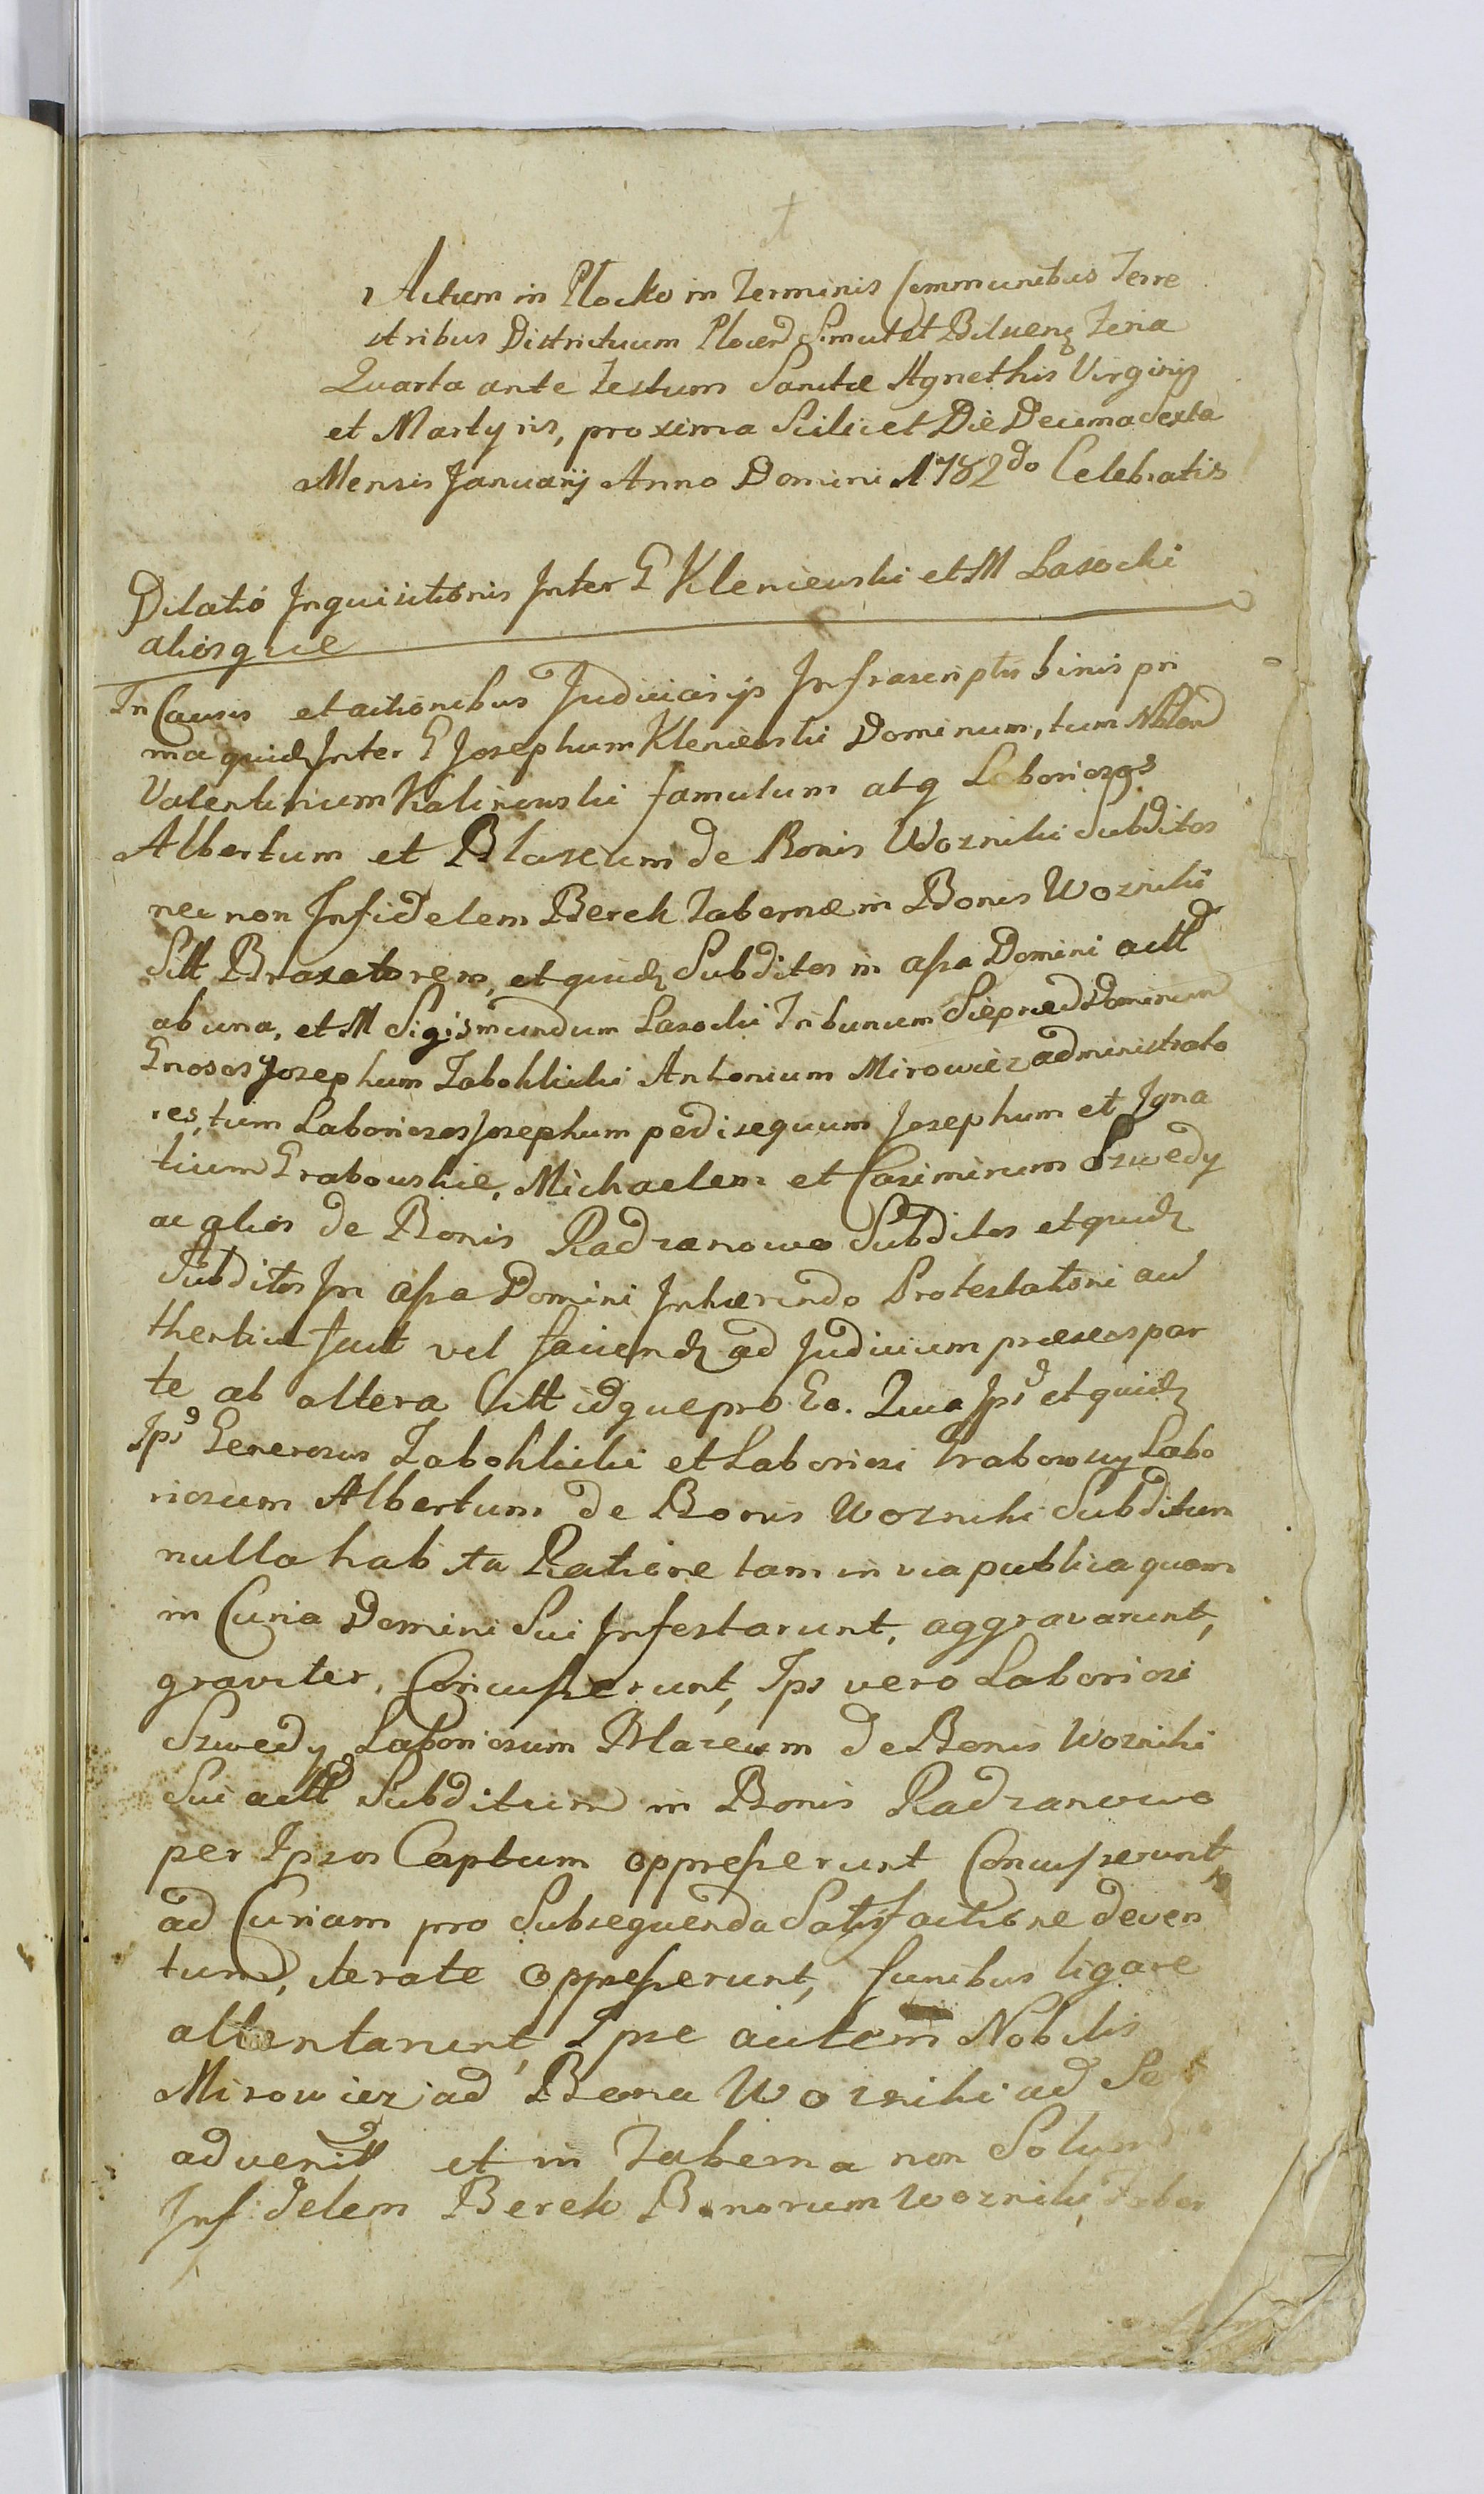 Actum in Plocko in Terminis Communibus Terre
stribus Districtuum Plocen Simul et Bilscens Feria
Quarta ante Festum Sanctæ Agnethis Virginis
et Martyris, proxima Scilicet Die Decima Sexta
Mensis Januarij Anno Domini 1782do Celebratis
Dilatio Inquisitionis Inter G Kleniewski et M Lasocki
aliosque
In Causis et actionibus Judiciarijs Infrascriptis binis pri
ma quid Inter G Josephum Kleniewski Dominum, tum Nblem
Valentinum Kalinowski famulum atq Laboriosos
Albertum et Blaseum de Bonis Wozniki Subditos
nec non Infidelem Berek Tabernæ in Bonis Wozniki
Sitt Braxatorem, et quid Subditos in assa Domini act
ab una, et M Sigismundum Lasocki Tribunum Sieprced Dominum
Gnosos Josephum Zabokliki Antonium Mirowicz administrato
res, tum Laboriosos Josephum pedisequum Josephum et Igna
tium Grabowskie, Michaelem et Casimirum Szwedy
ac alios de Bonis Radzanowo Subditos et quid
Subditos In assa Domini Inhærendo Protestationi au
thenticæ fact vel faciend ad Judicium præsens par
te ab altera Citt idque pro Eo. Quia Ips et quid
Ips Generosus Zabokliki et Laboriosi Grabowscy Labo
riosum Albertum de Bonis Wozniki Subditum
nulla habita Ratione tam in via publica quam
in Curia Domini Sui Infestarunt, aggravarunt,
graviter, Concusserunt, Ips vero Laboriosi
Szwedy Laboriosum Blazeum de Bonis Wozniki
Sui act Subditum in Bonis Radzanowo
per Ipsos Captum oppresserunt Concusserunt
ad Curiam pro Subsequenda Satisfactione deven
tum, iterate oppresserunt, funibus ligare
attentarunt, Ipse autem Nobilis
Mirowicz ad Bona Wozniki ad
advenit et in Taberna non Solum
Infidelem Berek Bonorum Wozniki